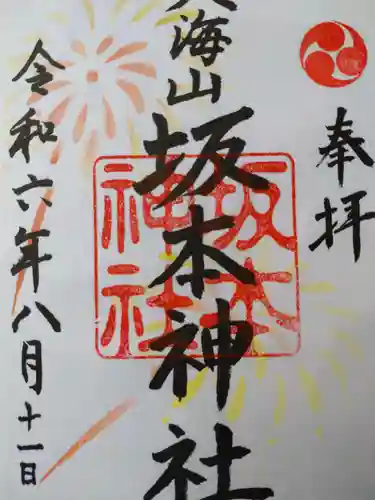 奉拝
大海山
坂本神社
坂本
神社
令和六年八月十一日